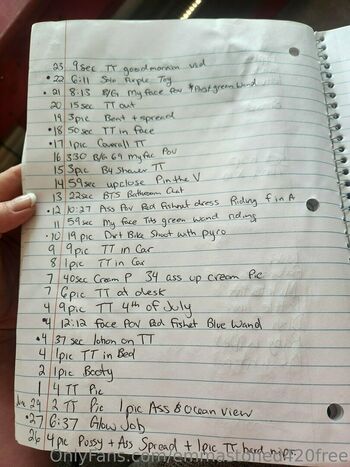 23 9sec TT good mornin vid
• 22 6:11 Solo Purple Toy
• 21 8:13 B/G My face Pov green Wand
20 15sec TT out
19 3pic Bent + spread
• 18 50sec TT in face
• 17 1pic Coverall TT
16 3:30 B/G 69 my fac Pov
15 3pic By Shower TT
14 59sec upclose Pin the V
13 22sec BTS Bathroom Chat
• 12 10:27 Ass Pov Red Fishnet dress Riding f in A
11 59sec My face Tits green wand riding
• 10 19pic Dirt Bike Shoot with pyro
9 9pic TT in Car
8 1pic TT in Car
7 40sec Cream P 34 ass up cream Pic
7 6pic TT at desk
4 9pic TT 4th of July
• 4 12:12 face Pov Red Fishnet Blue Wand
• 4 37 sec lotion on TT
4 1pic TT in Bed
2 1pic Booty
1 4 TT Pic
29 2 TT Pic 1pic Ass & Ocean View
• 27 6:37 Blow Job
26 4pic Pussy + Ass Spread + 1pic TT hard nips
OnlyFans.com/emmastoned420free